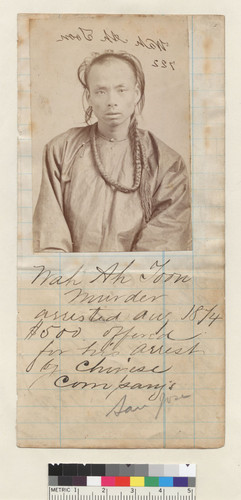 Wah Ah Toon
722
Wah Ah Toon
Murder
arrested aug. 1874
$500 offered
for his arrest
by Chinese
Company's
San Jose
METRIC 1 2 3 4 5 6